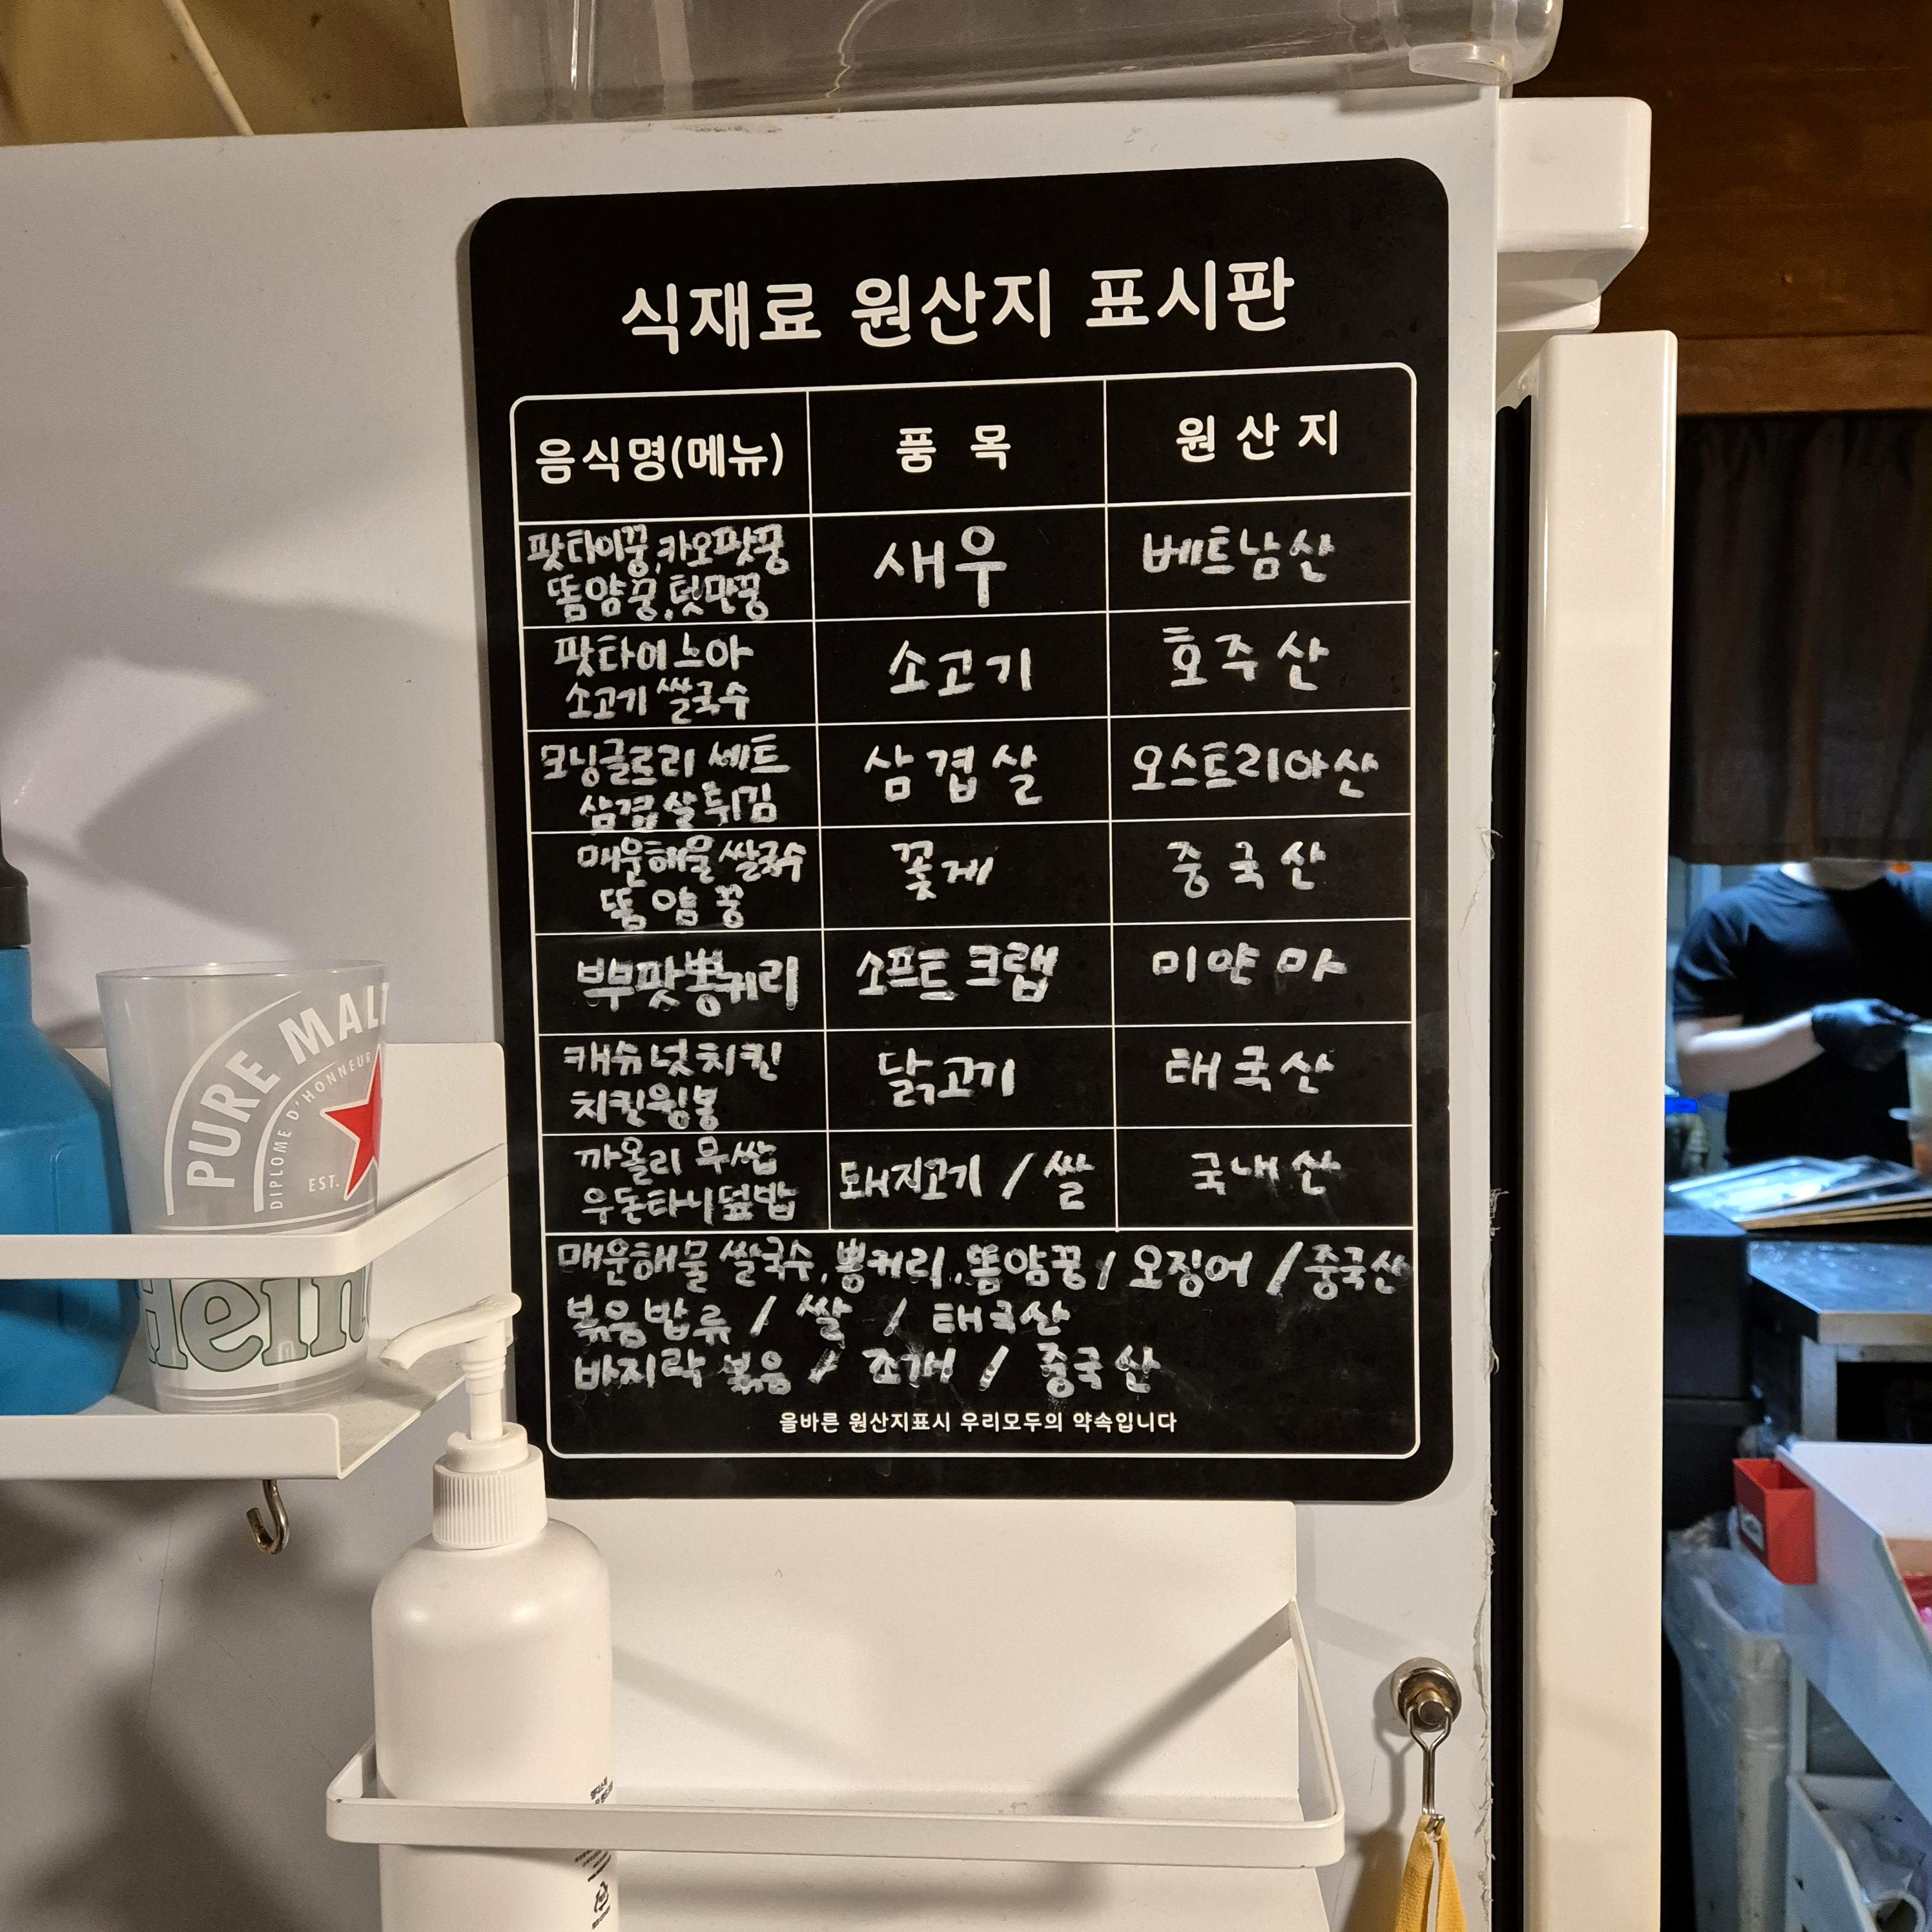 식재료 원산지 표시판
음식명(메뉴) 품목 원산지
팟타이꿍,카오팟꿍
똠얌꿍,텃만꿍
새우 베트남산
팟타이느아
소고기 쌀국수
소고기 호주산
모닝글로리 세트
삼겹살튀김
삼겹살 오스트리아산
매운해물 쌀국수
똠얌꿍
꽃게 중국산
뿌팟뽕커리 소프트크랩 미얀마
캐슈넛치킨
치킨윙봉
닭고기 태국산
까올리 무쌉
우돈타니덮밥
돼지고기 / 쌀 국내산
매운해물 쌀국수, 뽕커리, 똠얌꿍 / 오징어 / 중국산
볶음밥류 / 쌀 / 태국산
바지락 볶음 / 조개 / 중국산
올바른 원산지표시 우리모두의 약속입니다
PURE MALT
DIPLOME D'HONNEUR
EST.
Hein